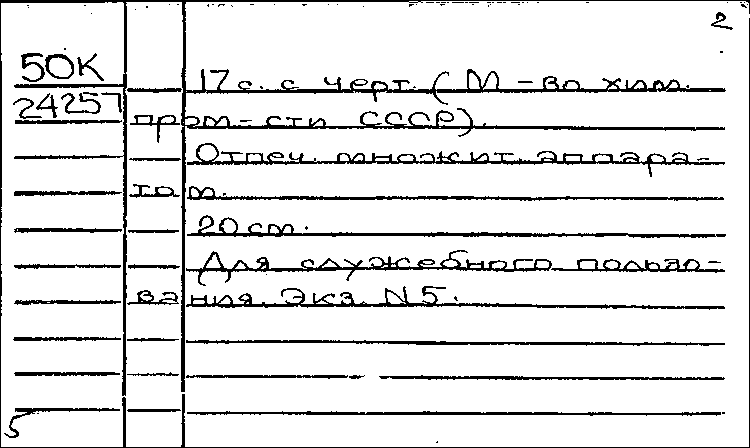 2
50К
17 с. с черт. (М-во хим.
24257
пром-сти СССР).
Отпеч. множит. аппара-
том.
20 см.
Для служебного пользо-
вания. Экз. N 5.
5